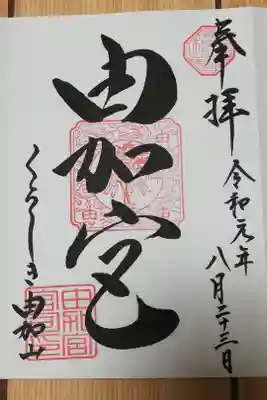 奉拝
令和元年
八月二十三日
由加宮
くらしき由加山